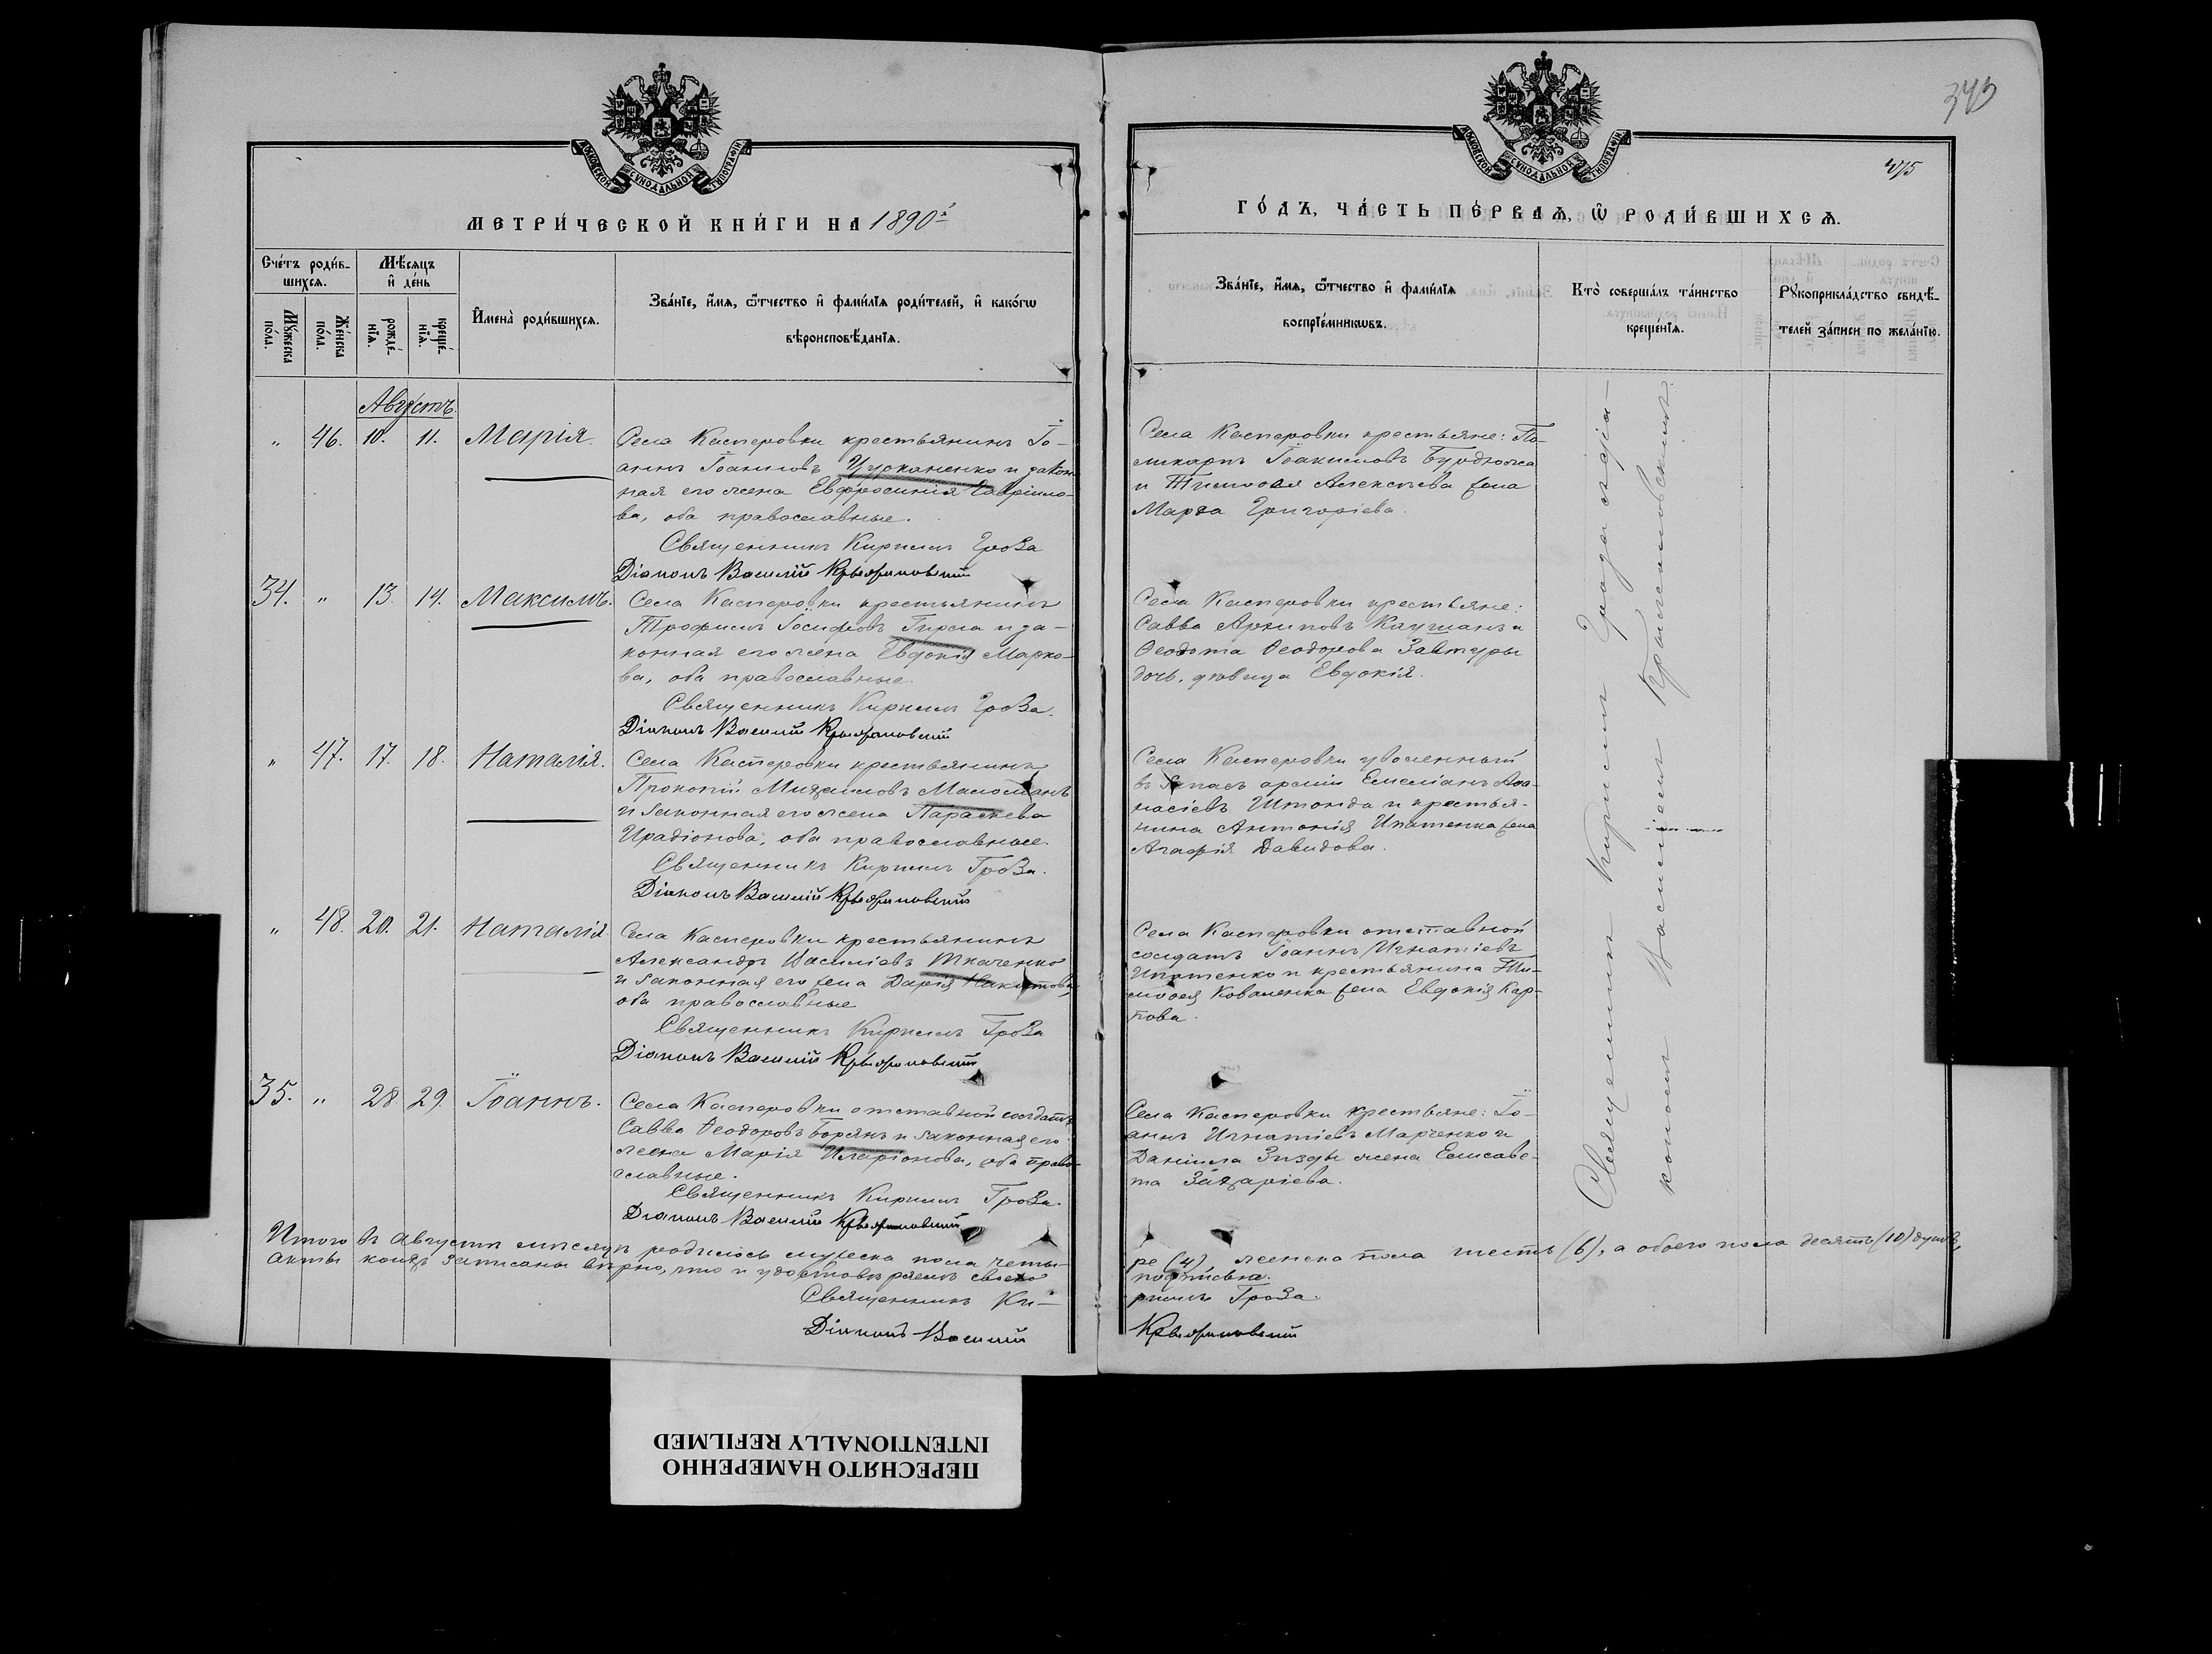 343
475
МОСКОВСКОЙ СѴНОДАЛЬНОЙ ТИПОГРАФІИ
МОСКОВСКОЙ СѴНОДАЛЬНОЙ ТИПОГРАФІИ
МЕТРИ́ЧЕСКОЙ КНИ́ГИ НА 1890й
ГО́ДЪ, ЧА́СТЬ ПЕ́РВАѦ, Ѽ РОДИ́ВШИХСѦ.
Сче́тъ роди́в-
шихсѧ.
Мꙋ́жеска по́ла.
Же́нска по́ла.
Мѣ́сѧцъ
и҆ де́нь
рожде́-нїѧ.
креще́-нїѧ.
И҆мена̀ роди́вшихсѧ.
Зва́нїе, и҆́мѧ, ѻ҆́тчество и҆ фами́лїѧ роди́телей, и҆ како́гѡ
вѣроисповѣ́данїѧ.
Зва́нїе, и҆́мѧ, ѻ҆́тчество и҆ фами́лїѧ
воспрїе́мникѡвъ.
Кто̀ соверша́лъ та́инство
креще́нїѧ.
Рꙋкоприкла́дство свидѣ́-
телей за́писи по жела́нїю.
Августъ.
" 46. 10. 11. Марія.
Села Касперовки крестьянинъ Іо-
аннъ Іоакимовъ Цурканенко и закон-
ная его жена Евфросинія Гавріило-
ва, оба православные.
Священникъ Кириллъ Гроза
Діаконъ Василій Крыжановскій
Села Касперовки крестьяне: По-
ликарпъ Іоакимовъ
и Тимоѳея Алексѣева жена
Марѳа Григоріева.
34. " 13. 14. Максимъ.
Села Касперовки крестьянинъ
Трофимъ Іосифовъ Гирла и за-
конная его жена Евдокія Марко-
ва, оба православные.
Священникъ Кириллъ Гроза.
Діаконъ Василій Крыжановскій
Села Касперовки крестьяне:
Савва Архиповъ Каушанъ и
Ѳеодота Ѳеодорова
дочь, дѣвица Евдокія.
" 47. 17. 18. Наталія.
Села Касперовки крестьянинъ
Прокопій Михаиловъ Маломанъ
и законная его жена Параскева
Иродіонова, оба православные.
Священникъ Кириллъ Гроза.
Діаконъ Василій Крыжановскій
Села Касперовки уволенный
въ запасъ арміи Емеліанъ Аѳа-
насіевъ Штонда и крестья-
нина Антонія Ипатенка жена
Агафія Давидова.
" 48. 20. 21. Наталія.
Села Касперовки крестьянинъ
Александръ Василіевъ Ткаченко
и законная его жена Дарія Никитова
оба православные
Священникъ Кириллъ Гроза
Діаконъ Василій Крыжановскій
Села Касперовки отставной
солдатъ Іоаннъ Игнатіевъ
Ипатенко и крестьянина Ти-
моѳея Коваленка жена Евдокія Кар-
пова.
35. " 28. 29. Іоаннъ.
Села Касперовки отставной солдатъ
Савва Ѳеодоровъ Борянъ и законная его
жена Марія Иларіонова, оба право-
славные.
Священникъ Кириллъ Гроза.
Діаконъ Василій Крыжановскій
Села Касперовки крестьяне: Іо-
аннъ Игнатіевъ Марченко и
Даніила жена Елисаве-
та Захаріева.
Священникъ Кириллъ Гроза съ діа-
кономъ Василіемъ Крыжановскимъ.
Итого въ Августѣ мѣсяцѣ родилось мужеска пола четы-
ре (4), женска пола шесть (6), а обоего пола десять (10) душъ,
акты коихъ записаны вѣрно, что и удостовѣряемъ своею
подписью.
Священникъ Ки-
риллъ Гроза.
Діаконъ Василій
Крыжановскій
ПЕРЕСНЯТО НАМЕРЕННО
INTENTIONALLY REFILMED